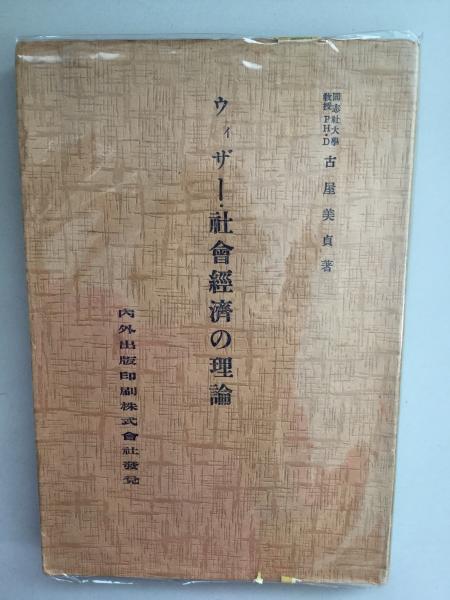 同志社大學
教授 PH・D
古屋美貞著
ウィザー・社會經濟の理論
內外出版印刷株式會社發兌